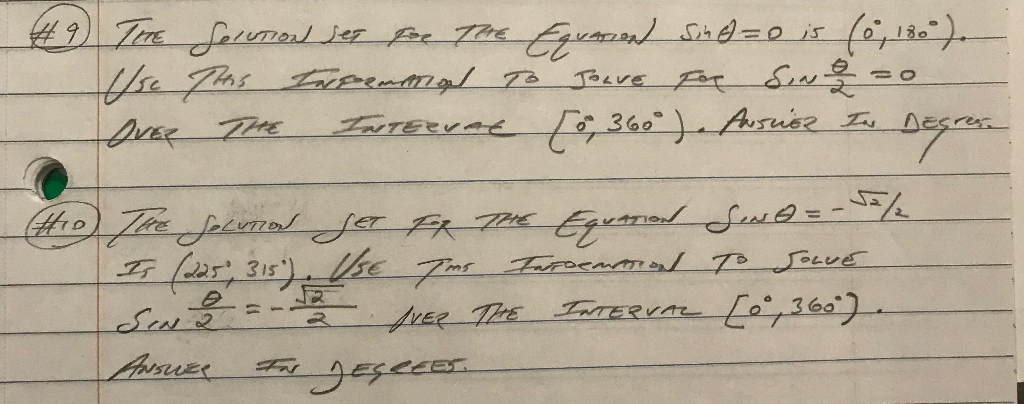 #9 THE SOLUTION SET FOR THE EQUATION Sin θ = 0 is (0°, 180°).
USE THIS INFORMATION TO SOLVE FOR SIN θ/2 = 0
OVER THE INTERVAL [0°, 360°). ANSWER IN DEGREES.
#10 THE SOLUTION SET FOR THE EQUATION SIN θ = -√2/2
IS (225°, 315°). USE THIS INFORMATION TO SOLVE
SIN θ/2 = -√2/2 OVER THE INTERVAL [0°, 360°).
ANSWER IN DEGREES.